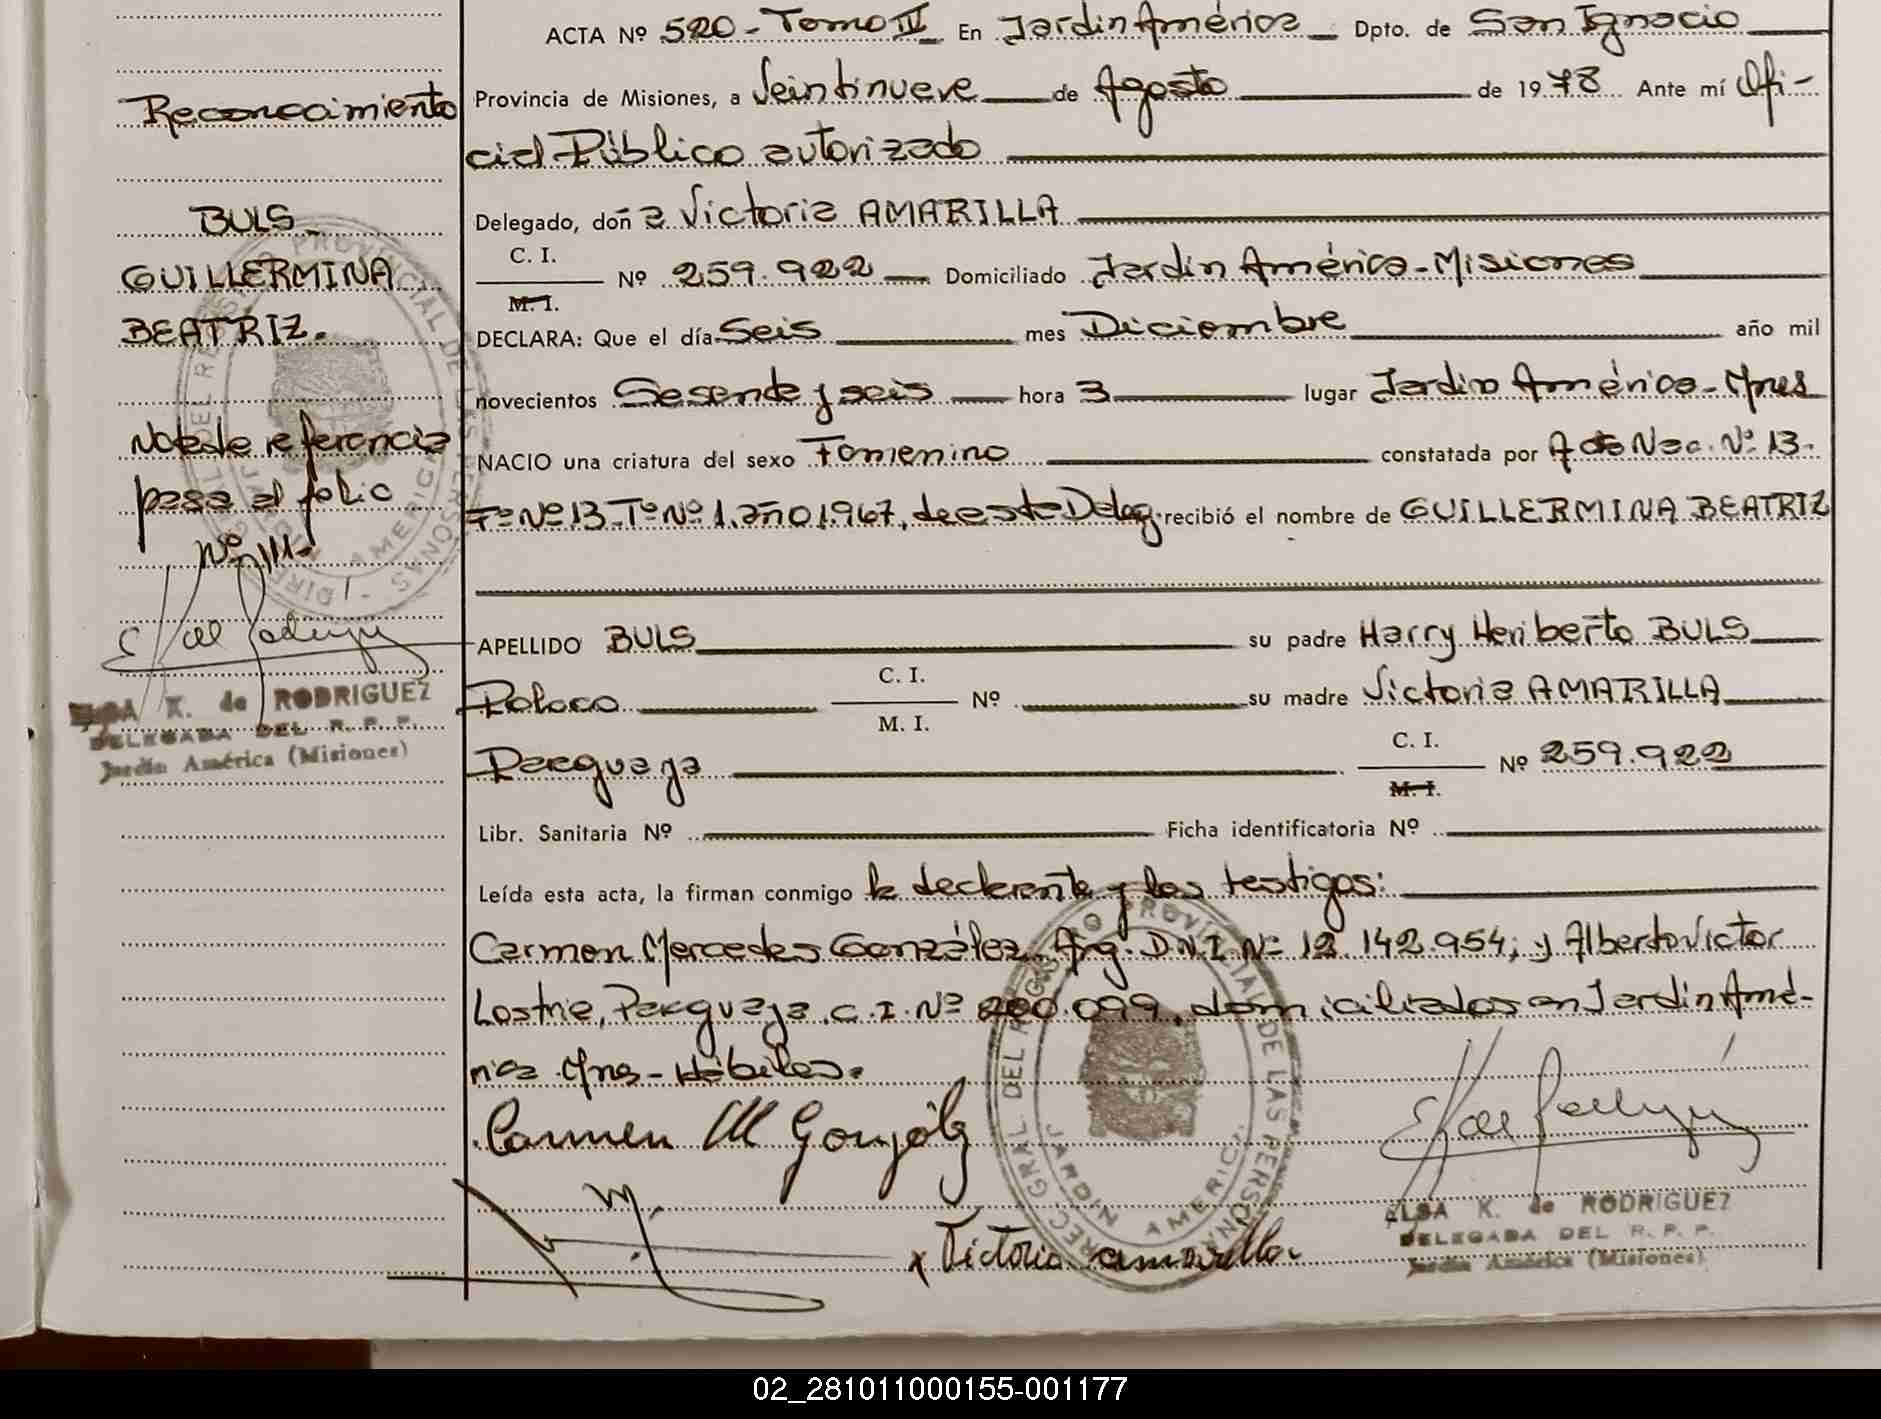 ACTA Nº 520 - Tomo III En Jardin América Dpto. de San Ignacio
Reconocimiento
Provincia de Misiones, a Veintinueve de Agosto de 1978 Ante mí Ofi-
cial Público autorizado
BULS
GUILLERMINA
BEATRIZ.
Delegado, doña Victoria AMARILLA
C. I.
M. I.
Nº 259.922 Domiciliado Jardin América - Misiones
DECLARA: Que el día Seis mes Diciembre año mil
novecientos Sesenta y seis hora 3 lugar Jardin América - Mnes
Nota de referencia
pasa al folio
Nº 111-
NACIO una criatura del sexo Femenino constatada por Acta Nac. Nº 13.
Fº Nº 13 - Tº Nº 1. año 1.967, de esta Deleg. recibió el nombre de GUILLERMINA BEATRIZ
APELLIDO BULS su padre Harry Heriberto BULS
Polaco C. I. M. I. Nº su madre Victoria AMARILLA
ELSA K. de RODRIGUEZ
DELEGADA DEL R. P. P.
Jardín América (Misiones)
Paraguaya C. I. M. I. Nº 259.922
Libr. Sanitaria Nº Ficha identificatoria Nº
Leída esta acta, la firman conmigo la declarante y los testigos:
Carmen Mercedes González, Arg. D.N.I. Nº 12.142.954; y Alberto Victor
Paraguaya, C. I. Nº 200.099, domiciliados en Jardin Amé-
rica Mns - Hábiles.
Carmen M González
Victoria Amarilla
DIREC. GRAL. DEL REGISTRO PROVINCIAL DE LAS PERSONAS
JARDIN AMERICA
ELSA K. de RODRIGUEZ
DELEGADA DEL R. P. P.
Jardín América (Misiones)
02_281011000155-001177